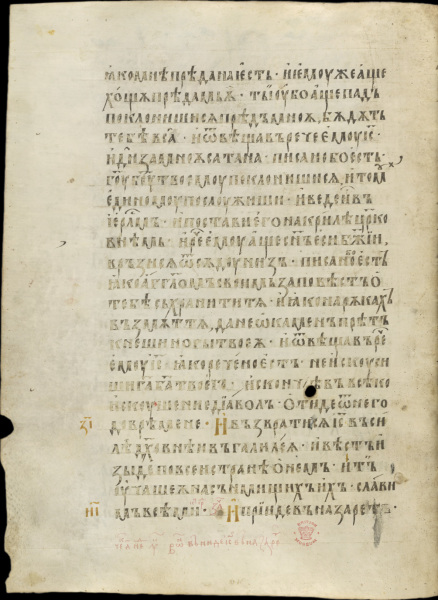 ꙗко мнѣ прѣдана естъ · и емоу же аще
хощѫ прѣдамь ѫ · ты оубо аще падъ
поклониши сѧ прѣдъ мноѫ, бѫдѫтъ
тебѣ всꙗ · и ѿвѣщавъ рече емоу і҃с ·
иди за мноѫ сатана · писано бо естъ ·
г҃оу б҃оу твоемоу поклониши сѧ, и томꙋ
единомоу послоужиши · и веде и въ
іер҃лмъ · и постави его на крилѣ цр҃ко
внѣмь · и рече емоу аще с҃нъ еси б҃жїи,
връзи сѧ ѿсѫдоу низъ · писано естъ
ꙗко аг҃гломъ своимъ заповѣстъ о
тебѣ съхранити тѧ · и ꙗко на рѫкахъ
възмѫтъ тѧ, да не ѡ камень прѣтъ
кнеши ногы твоеѫ · и ѿвѣщавъ рече
емоу і҃с · ꙗко речено естъ · не искоуси
ши г҃а б҃а твоего · и сконча въ всѣко
искоушение дїаволъ ѿтиде ѿ него
до врѣмене · И възврати сѧ і҃с въ си
лѣ д҃ховнѣи въ галилеѫ · и вѣсть и
зыде по всеи странѣ о немъ · и тъ
оучааше на сънмищихъ ихъ · слави
мъ всѣми · И прїиде въ назаретъ ·